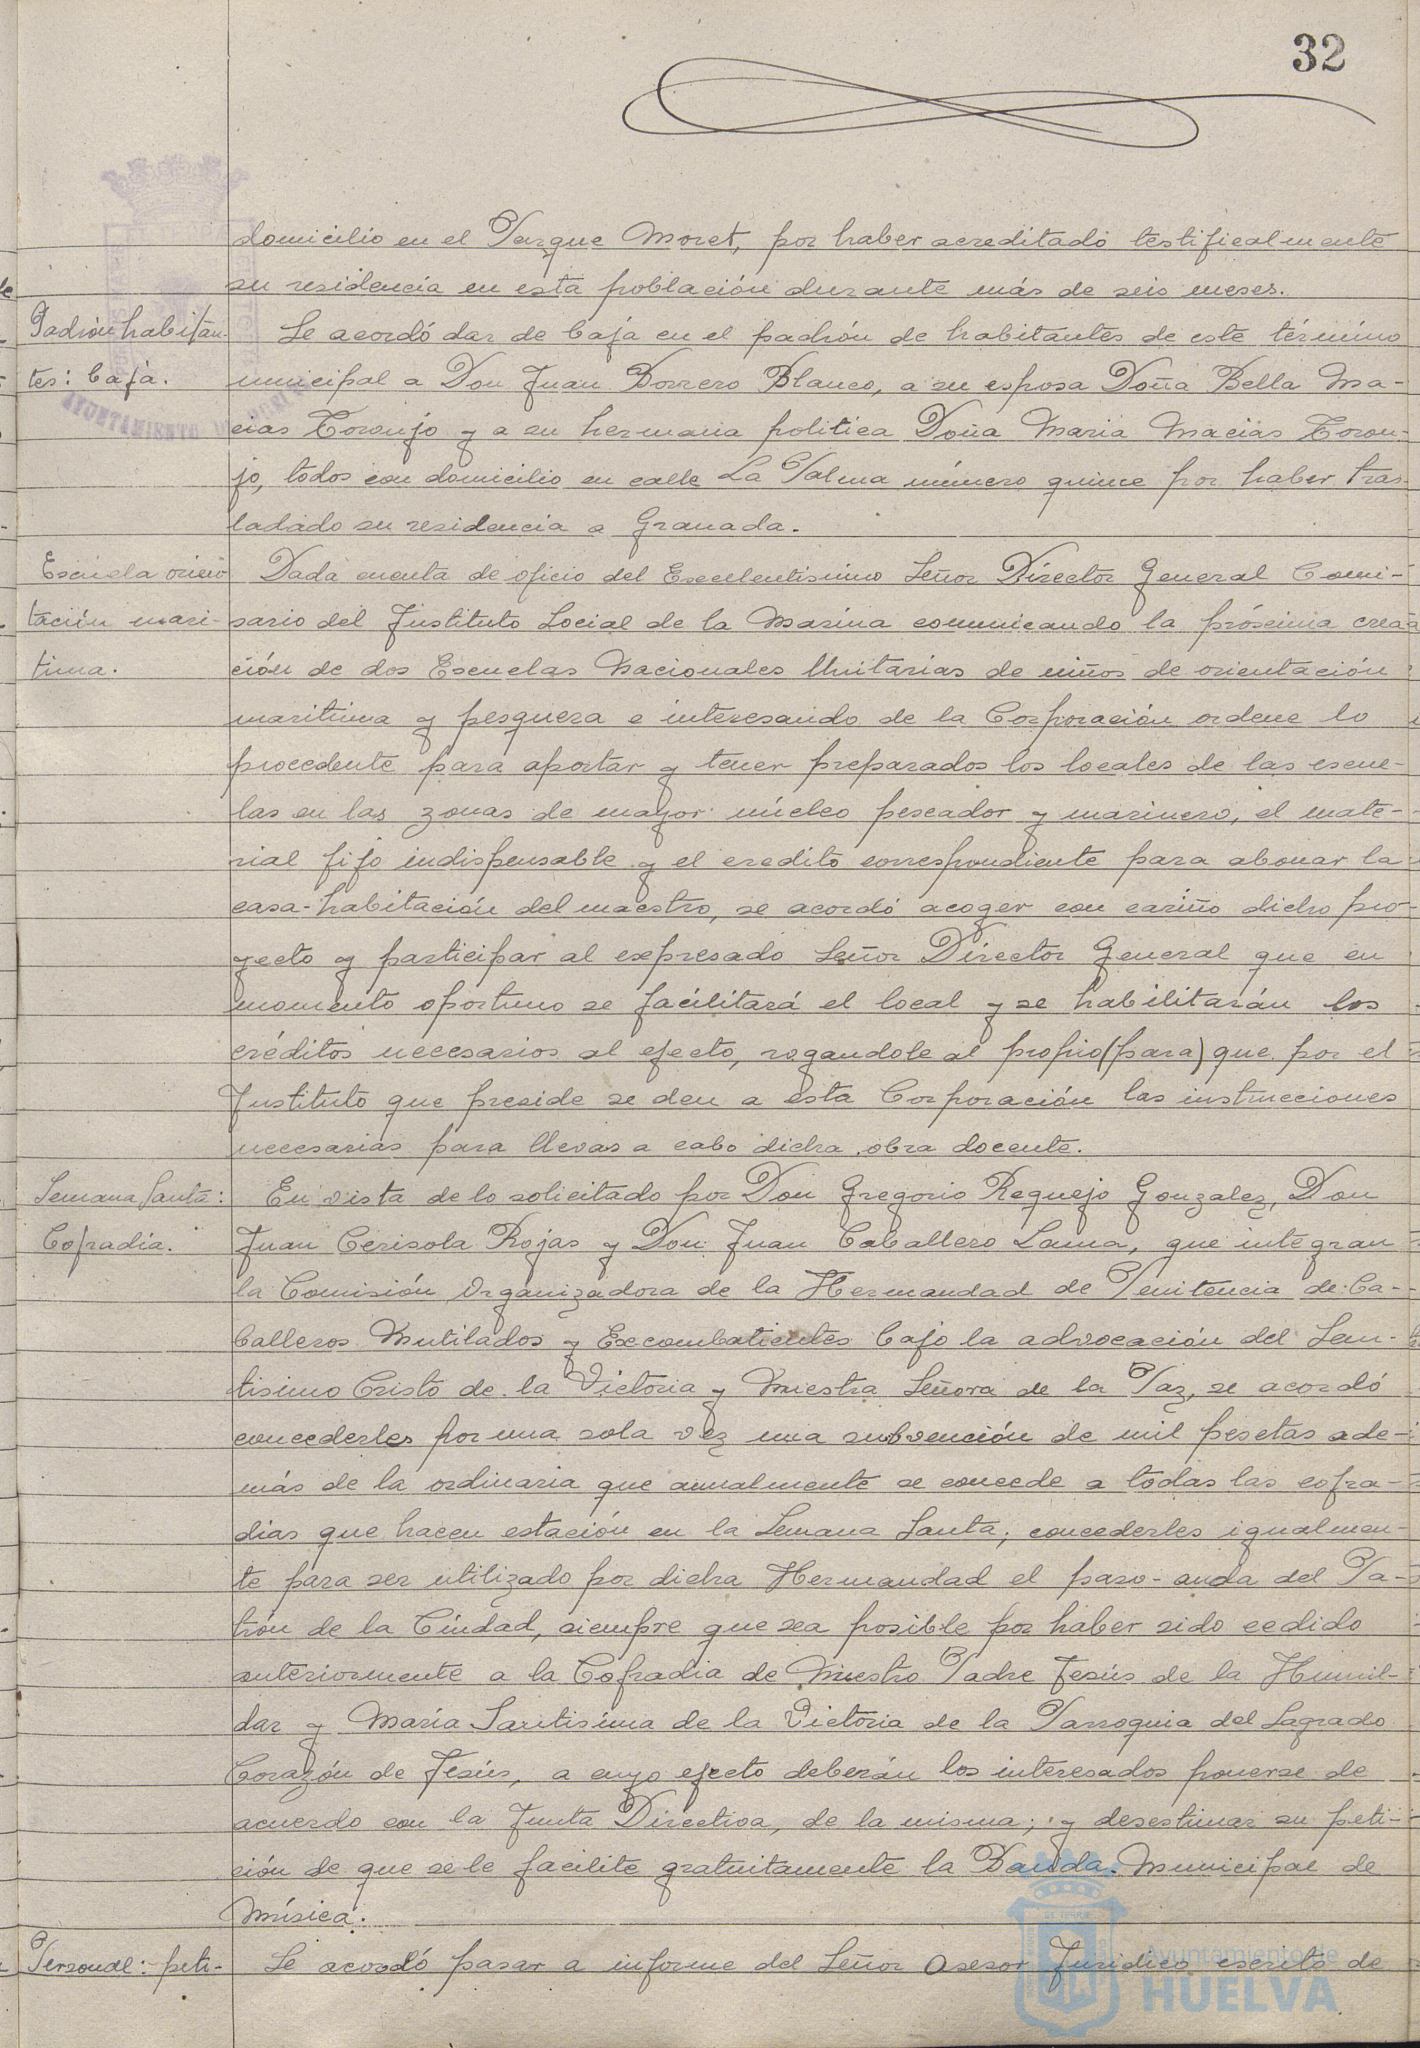 32
domicilio en el Parque Moret, por haber acreditado testificalmente
su residencia en esta población durante más de seis meses.
Padrón habitan-
tes: baja.
Se acordó dar de baja en el padrón de habitantes de este término
municipal a Don Juan Borrero Blanco, a su esposa Doña Bella Ma-
cias Toronjo y a su hermana politica Doña Maria Macias Toron-
jo, todos con domicilio en calle La Palma número quince por haber tras-
ladado su residencia a Granada.
Escuela orien-
tación mari-
tima.
Dada cuenta de oficio del Excelentisimo Señor Director General Comi-
sario del Instituto Social de la Marina comunicando la próxima crea-
ción de dos Escuelas Nacionales Unitarias de niños de orientación
maritima y pesquera e interesando de la Corporación ordene lo
procedente para aportar y tener preparados los locales de las escue-
las en las zonas de mayor núcleo pescador y marinero, el mate-
rial fijo indispensable y el credito correspondiente para abonar la
casa-habitación del maestro, se acordó acoger con cariño dicho pro-
yecto y participar al expresado Señor Director General que en
momento oportuno se facilitará el local y se habilitarán los
créditos necesarios al efecto, rogandole al propio (para) que por el
Instituto que preside se den a esta Corporación las instrucciones
necesarias para llevar a cabo dicha obra docente.
Semana Santa:
Cofradía.
En vista de lo solicitado por Don Gregorio Requejo Gonzalez, Don
Juan Cerisola Rojas y Don Juan Caballero Lama, que integran
la Comisión Organizadora de la Hermandad de Penitencia de Ca-
balleros Mutilados y Excombatientes bajo la advocación del San-
tisimo Cristo de la Victoria y Nuestra Señora de la Paz, se acordó
concederles por una sola vez una subvención de mil pesetas ade-
más de la ordinaria que anualmente se concede a todas las cofra-
dias que hacen estación en la Semana Santa; concederles igualmen-
te para ser utilizado por dicha Hermandad el paso-anda del Pa-
trón de la Ciudad, siempre que sea posible por haber sido cedido
anteriormente a la Cofradia de Nuestro Padre Jesús de la Humil-
dar y María Santisima de la Victoria de la Parroquia del Sagrado
Corazón de Jesús, a cuyo efecto deberán los interesados ponerse de
acuerdo con la Junta Directiva, de la misma; y desestimar su peti-
ción de que se le facilite gratuitamente la Banda Municipal de
Música.
Personal: peti-
Se acordó pasar a informe del Señor Asesor Juridico escrito de
AYUNTAMIENTO
Ayuntamiento de
HUELVA